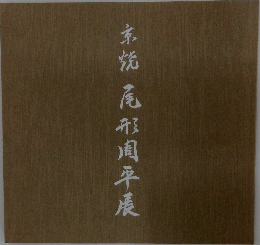 京焼 尾形周平展